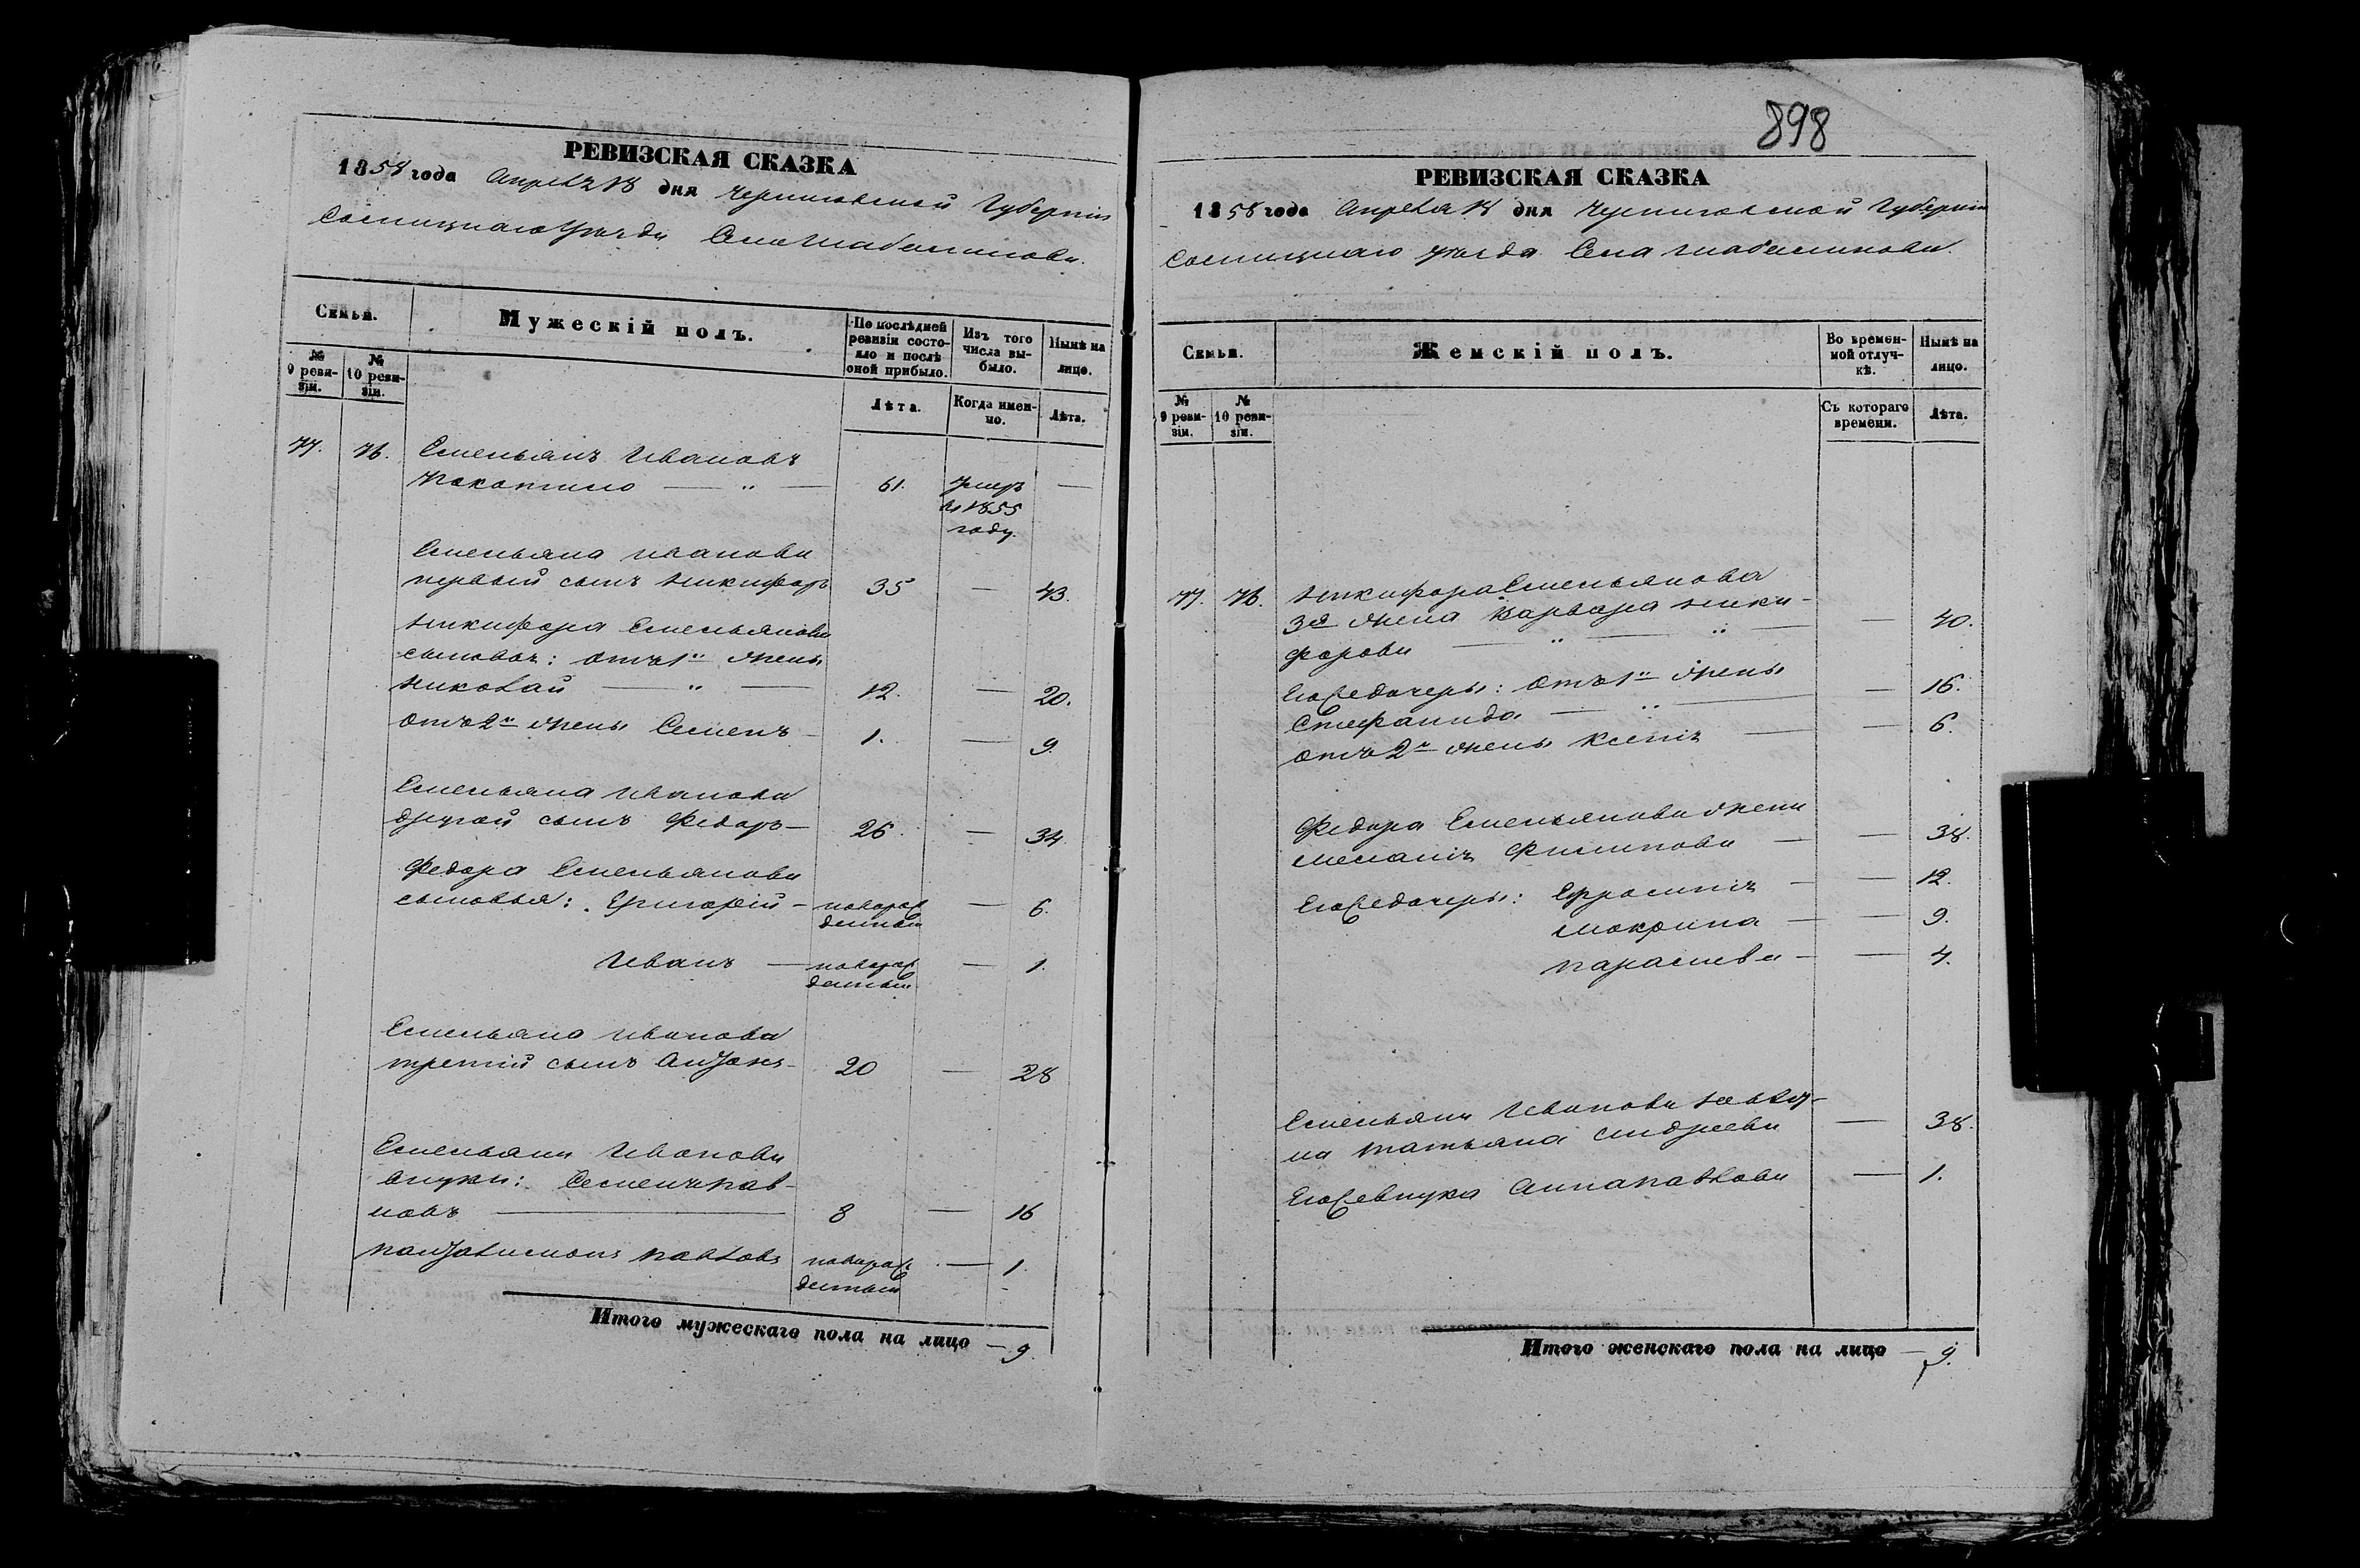 898
РЕВИЗСКАЯ СКАЗКА
1858 года Апреля 18 дня Черниговской Губернiи
Сосницкаго Уезда Села Шабалинова.
Семьи.
Мужескiй полъ.
По послѣдней ревизiи состояло и послѣ оной прибыло.
Изъ того числа выбыло.
Нынѣ на лицо.
№ 9 ревизiи.
№ 10 ревизiи.
Лѣта.
Когда именно.
Лѣта.
77. 76. Емельянъ Ивановъ
61. Умеръ —
въ 1855
году.
Емельяна Иванова
первый сынъ Никифоръ 35 — 43.
Никифора Емельянова
сыновья: отъ 1й жены
Николай — „ — 12. — 20.
отъ 2й жены Семенъ — 1. — 9.
Емельяна Иванова
другой сынъ Федоръ — 26. — 34.
Федора Емельянова
сыновья: Григорiй — новорож — 6.
денный
Иванъ — новорож — 1.
денный
Емельяна Иванова
третiй сынъ Антонъ — 20 — 28
Емельяна Иванова
внуки: Семенъ Пав-
ловъ — 8 — 16
Пантелимонъ Павловъ новорож — 1.
денный
Итого мужескаго пола на лицо — 9.
РЕВИЗСКАЯ СКАЗКА
1858 года Апреля 18 дня Черниговской Губернiи
Сосницкаго уезда Села Шабалинова.
Семьи.
Женскiй полъ.
Во временной отлучкѣ.
Нынѣ на лицо.
№ 9 ревизiи.
№ 10 ревизiи.
Съ котораго времени.
Лѣта.
77. 76. Никифора Емельянова
3я жена Варвара Ники-
форова — „ — „ — — 40.
Его же дочери: отъ 1й жены
Стефанида — „ — — 16.
отъ 2й жены Ксенiя — — 6.
Федора Емельянова жена
Меланiя Филипова — — 38.
Его же дочери: Ефросинiя — — 12.
Макрина — — 9.
Параскева — — 4.
Емельяна Иванова невѣст-
ка Татьяна Андреева — 38.
Его же внука Анна Павлова — 1.
Итого женскаго пола на лицо — 9.